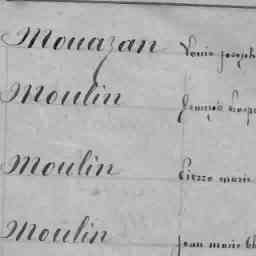 Mouazan Louis joseph
Moulin François
Moulin Pierre marie
Moulin jean marie